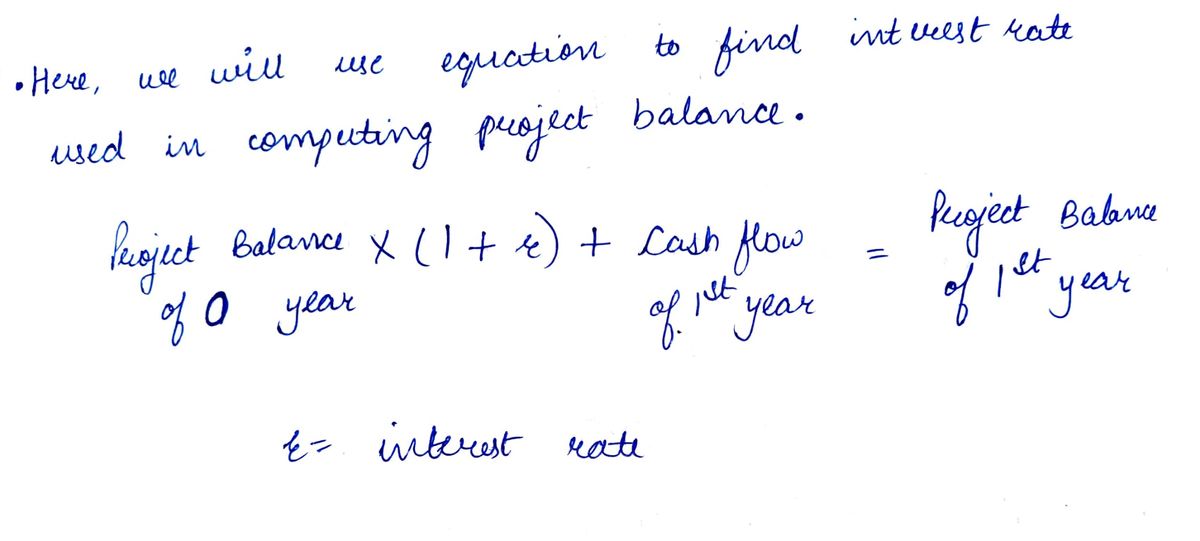 • Here, we will use equation to find interest rate
used in computing project balance.
Project Balance x (1 + r) + Cash flow = Project Balance
of 0 year of 1st year of 1st year
r = interest rate